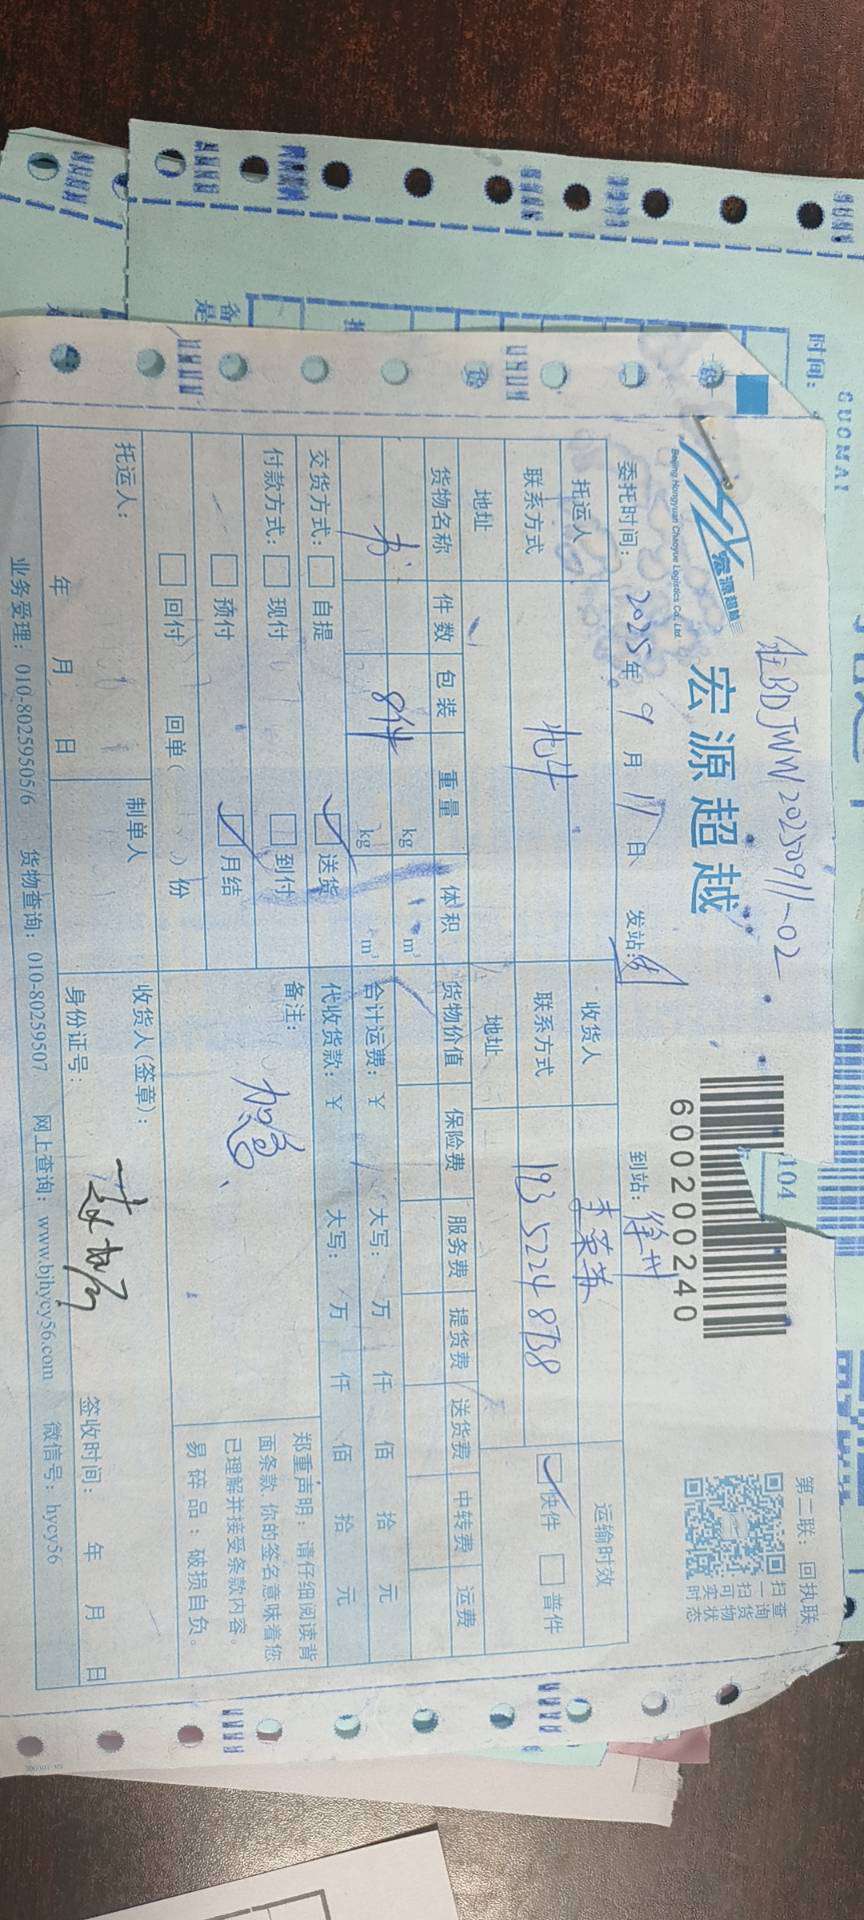 在BDJWW20250911-02
宏源超越
Beijing Hongyuan Chaoyue Logistics Co., Ltd.
宏源超越
104
600200240
第二联：回执联
扫一扫可查询货物实时状态
委托时间：2025年9月11日 发站： 到站：徐州
托运人 北 收货人 运输时效
联系方式 联系方式 193 5224 8738 ☑快件 □普件
地址 地址
货物名称 件数 包装 重量 体积 货物价值 保险费 服务费 提货费 送货费 中转费 运费
kg m³
书 8件 kg m³ 合计运费：¥ 大写： 万 仟 佰 拾 元
交货方式：□自提 ☑送货 代收货款：¥ 大写： 万 仟 佰 拾 元
付款方式：□现付 □到付 备注：
□预付 ☑月结 加急
□回付 回单（ ）份
郑重声明：请仔细阅读背
面条款 你的签名意味着您
已理解并接受条款内容。
易碎品：破损自负。
托运人： 制单人 收货人(签章)：
年 月 日 身份证号： 签收时间： 年 月 日
业务受理：010-80259505/6 货物查询：010-80259507 网上查询：www.bjhycy56.com 微信号：hycy56
时间：
GUOMAI